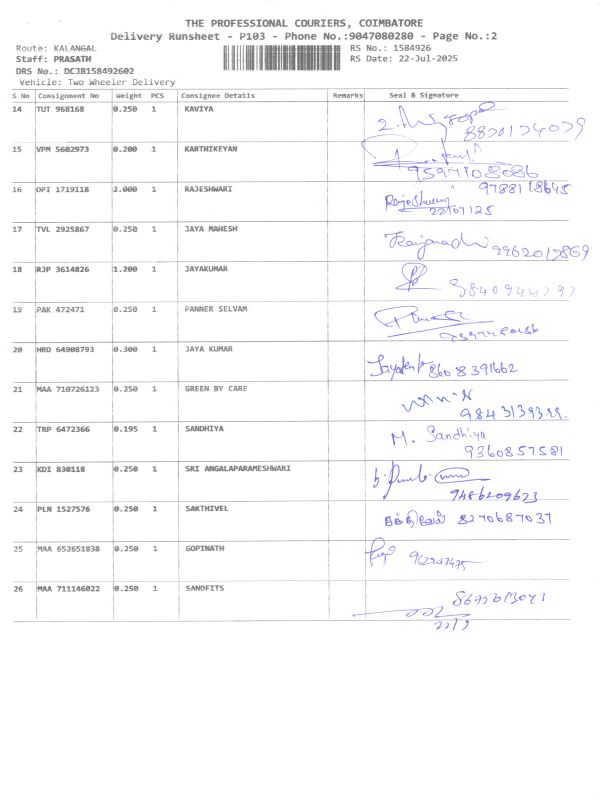 THE PROFESSIONAL COURIERS, COIMBATORE
Delivery Runsheet - P103 - Phone No.:9047080280 - Page No.:2
Route: KALANGAL RS No.: 1584926
Staff: PRASATH RS Date: 22-Jul-2025
DRS No.: DCJB158492602
Vehicle: Two Wheeler Delivery
S No Consignment No Weight PCS Consignee Details Remarks Seal & Signature
14 TUT 968168 0.250 1 KAVIYA
15 VPM 5602973 0.200 1 KARTHIKEYAN
9597108086
16 DPI 1719118 2.000 1 RAJESHWARI 9788118645
Rajeshwari
22/07/25
17 TVL 2925867 0.250 1 JAYA MAHESH
18 RJP 3614826 1.200 1 JAYAKUMAR
19 PAK 472471 0.250 1 PANNER SELVAM
20 HRD 64908793 0.300 1 JAYA KUMAR 8608391662
21 MAA 710726123 0.250 1 GREEN BY CARE
22 TRP 6472366 0.195 1 SANDHIYA M. Sandhiya
9360857581
23 KDI 830118 0.250 1 SRI ANGALAPARAMESHWARI
9486209623
24 PLN 1527576 0.250 1 SAKTHIVEL சக்திவேல் 8270687037
25 MAA 652651838 0.250 1 GOPINATH
26 MAA 711146022 0.250 1 SANDFITS